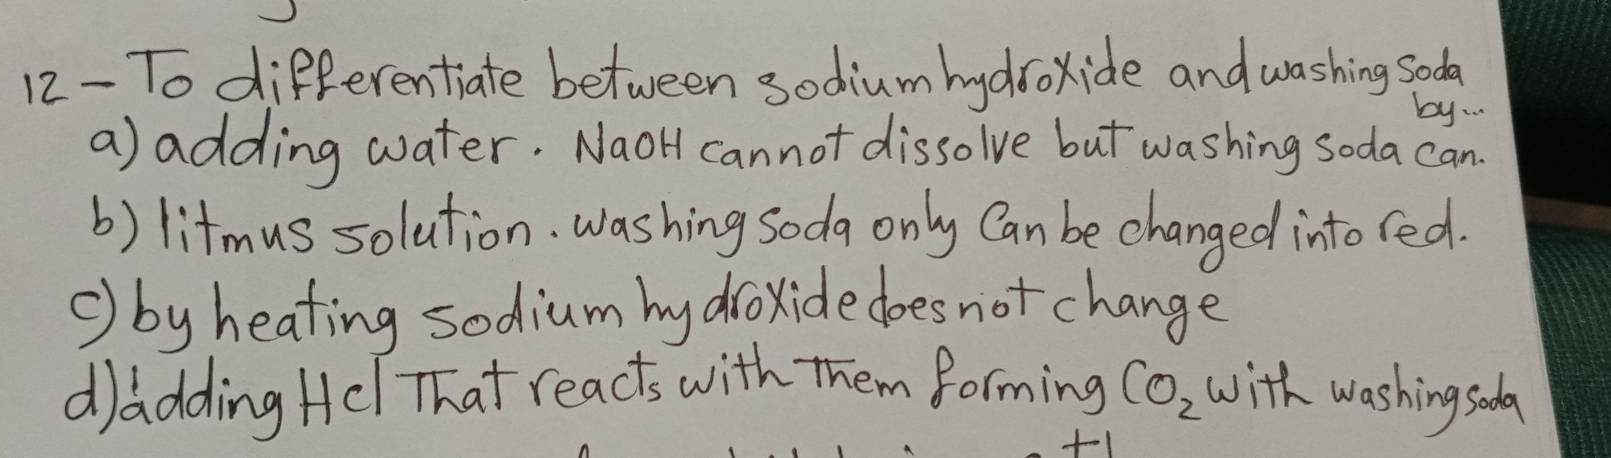 12 - To differentiate between sodium hydroxide and washing soda by...
a) adding water. NaOH cannot dissolve but washing soda can.
b) litmus solution. washing soda only can be changed into red.
c) by heating sodium hydroxide does not change
d) adding Hcl That reacts with Them forming CO₂ with washing soda